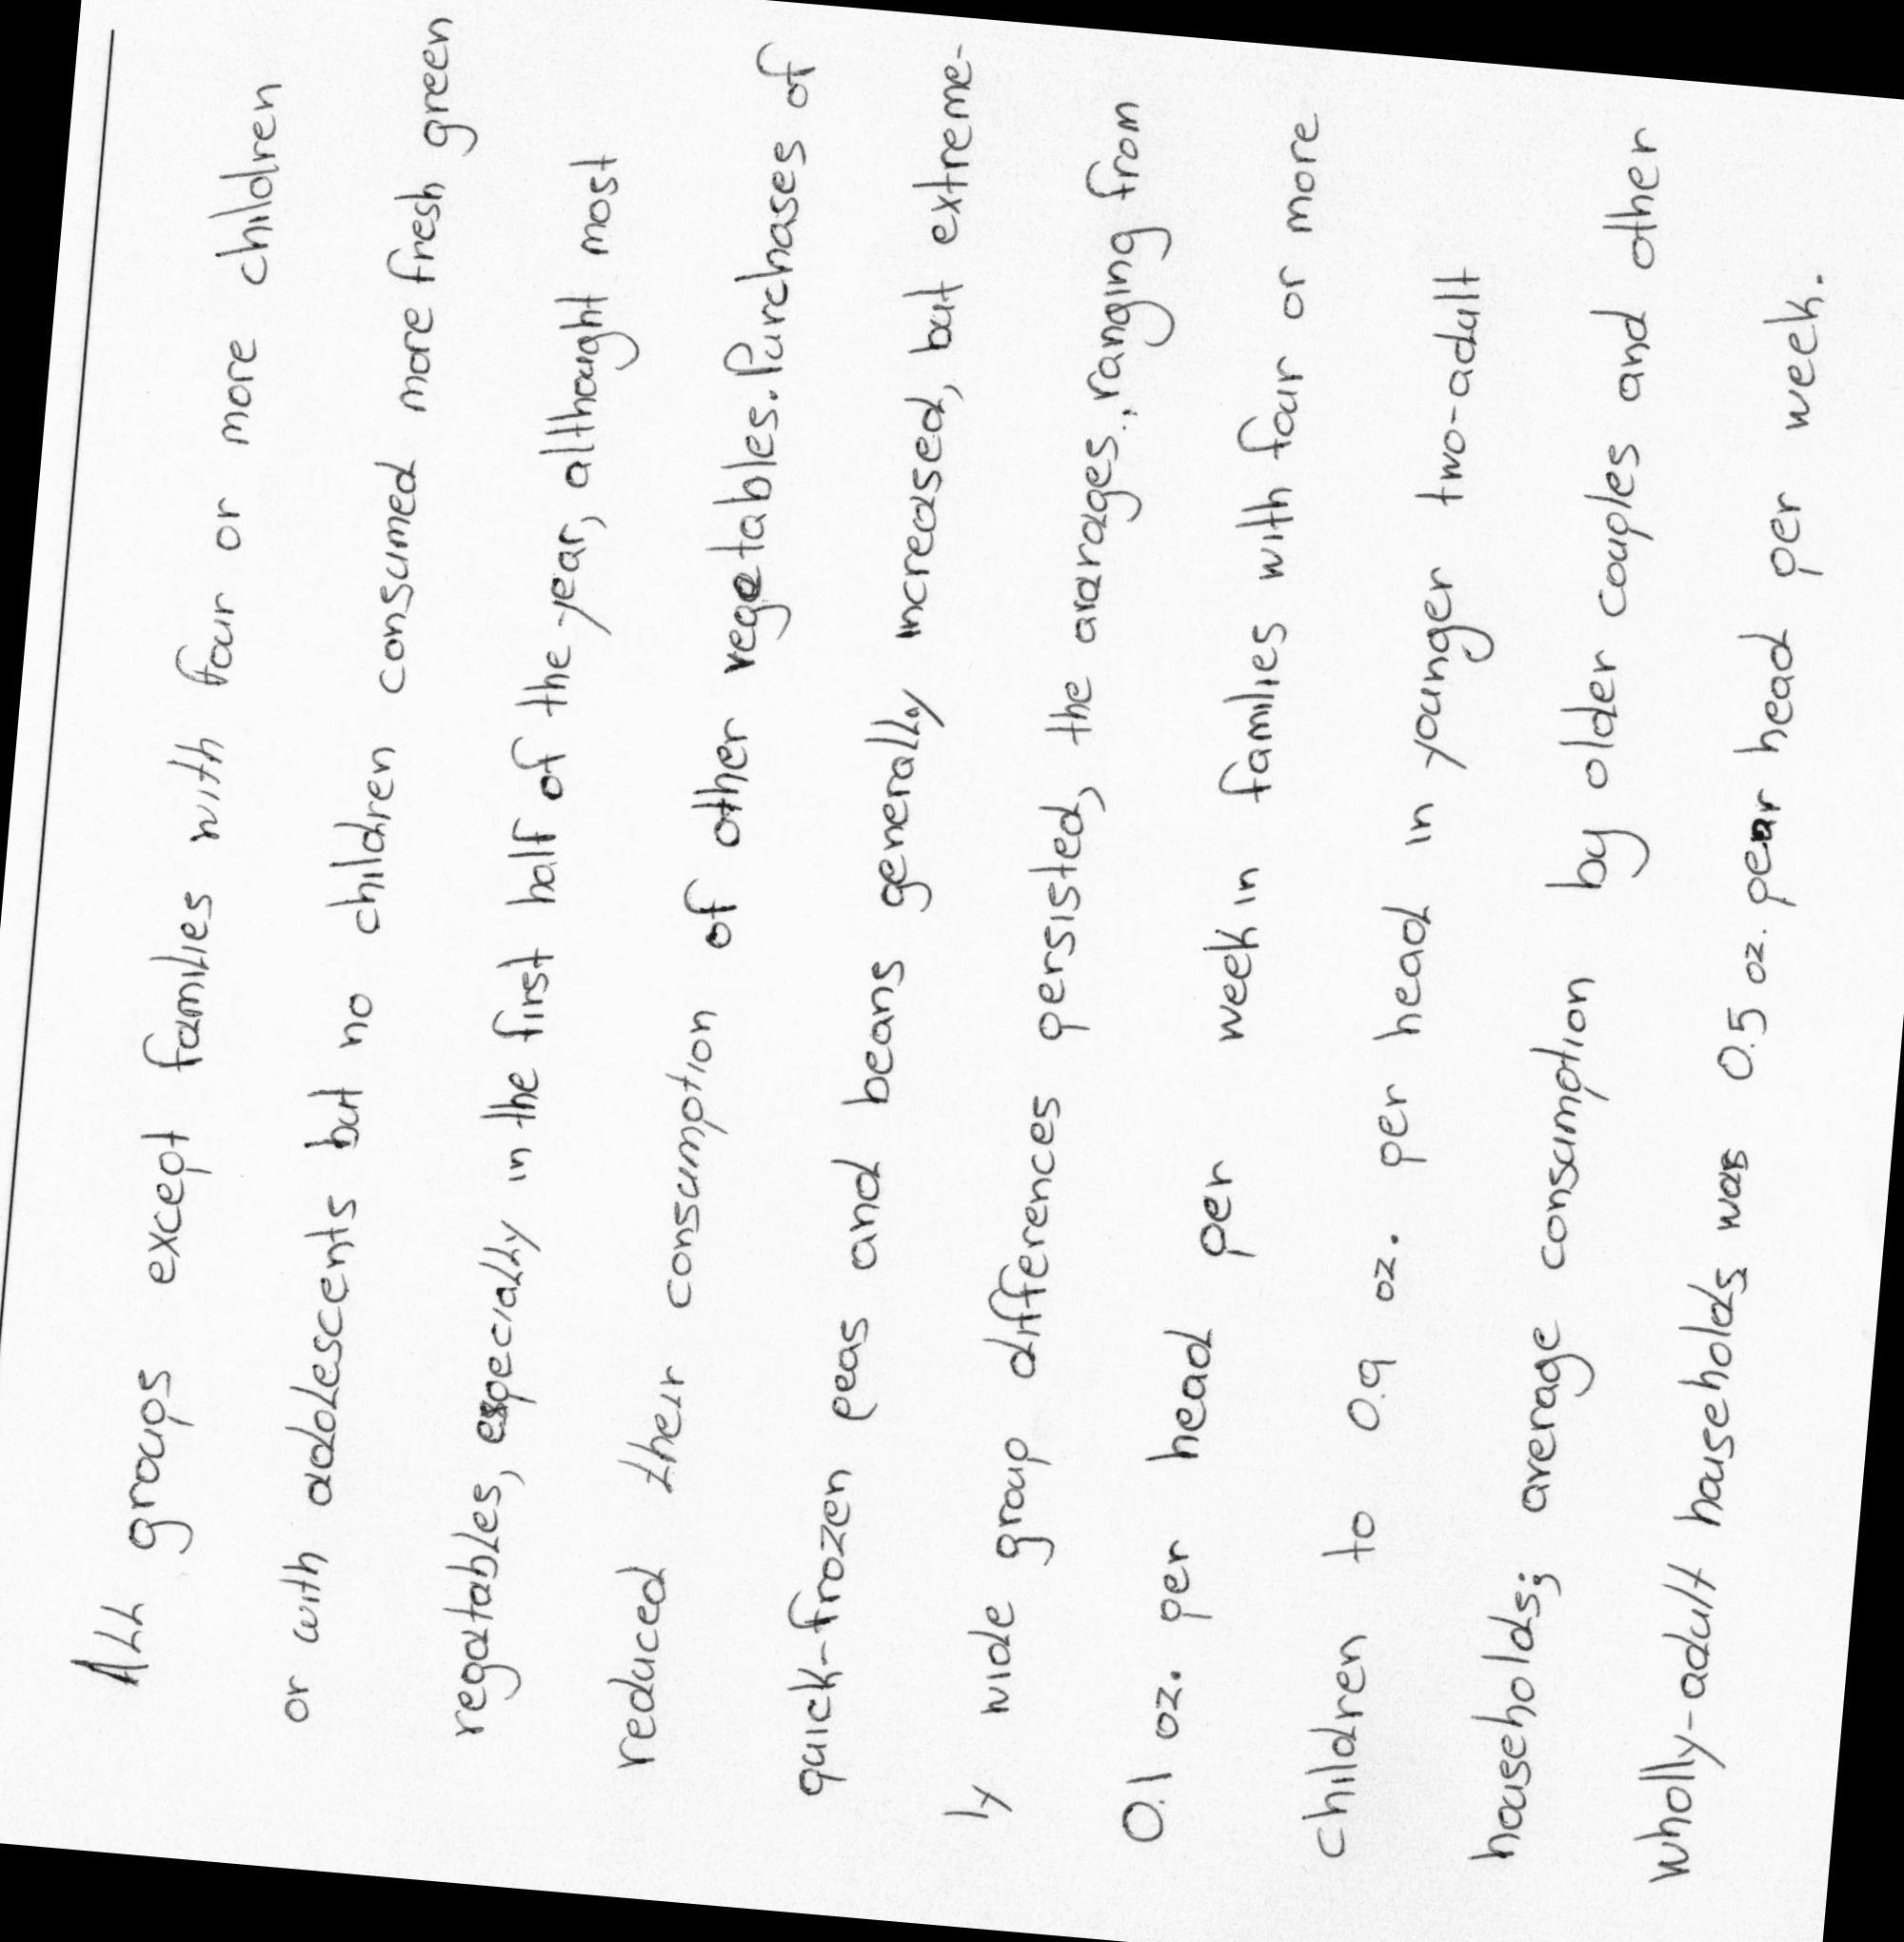 All groups except families with four or more children
or with adolescents but no children consumed more fresh green
vegatables, especially in the first half of the year, althought most
reduced their consumption of other vegetables. Purchases of
quick-frozen peas and beans generally increased, but extreme-
ly wide group differences persisted, the avarages, ranging from
0.1 oz. per head per week in families with four or more
children to 0.9 oz. per head in younger two-adult
households; average consumption by older couples and other
wholly-adult households was 0.5 oz. per head per week.